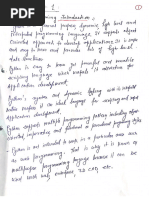 Python is a general purpose, dynamic, high level and
interpreted programming language. It supports object
oriented approach to develop applications. It is simple
and easy to learn and provides lots of high level
data structures.
Python is easy to learn yet powerful and versatile
scripting language which makes it attractive for
application development.
Python's syntax and dynamic typing with its interpreted
nature makes it an ideal language for scripting and rapid
application development.
Python supports multiple programming pattern, including object
oriented, imperative and functional or procedural programming styles.
Python is not intended to work in a particular area such
as web programming. That is why it is known as
multipurpose programming language because it can be
used with web, enterprise, 3D CAD etc.